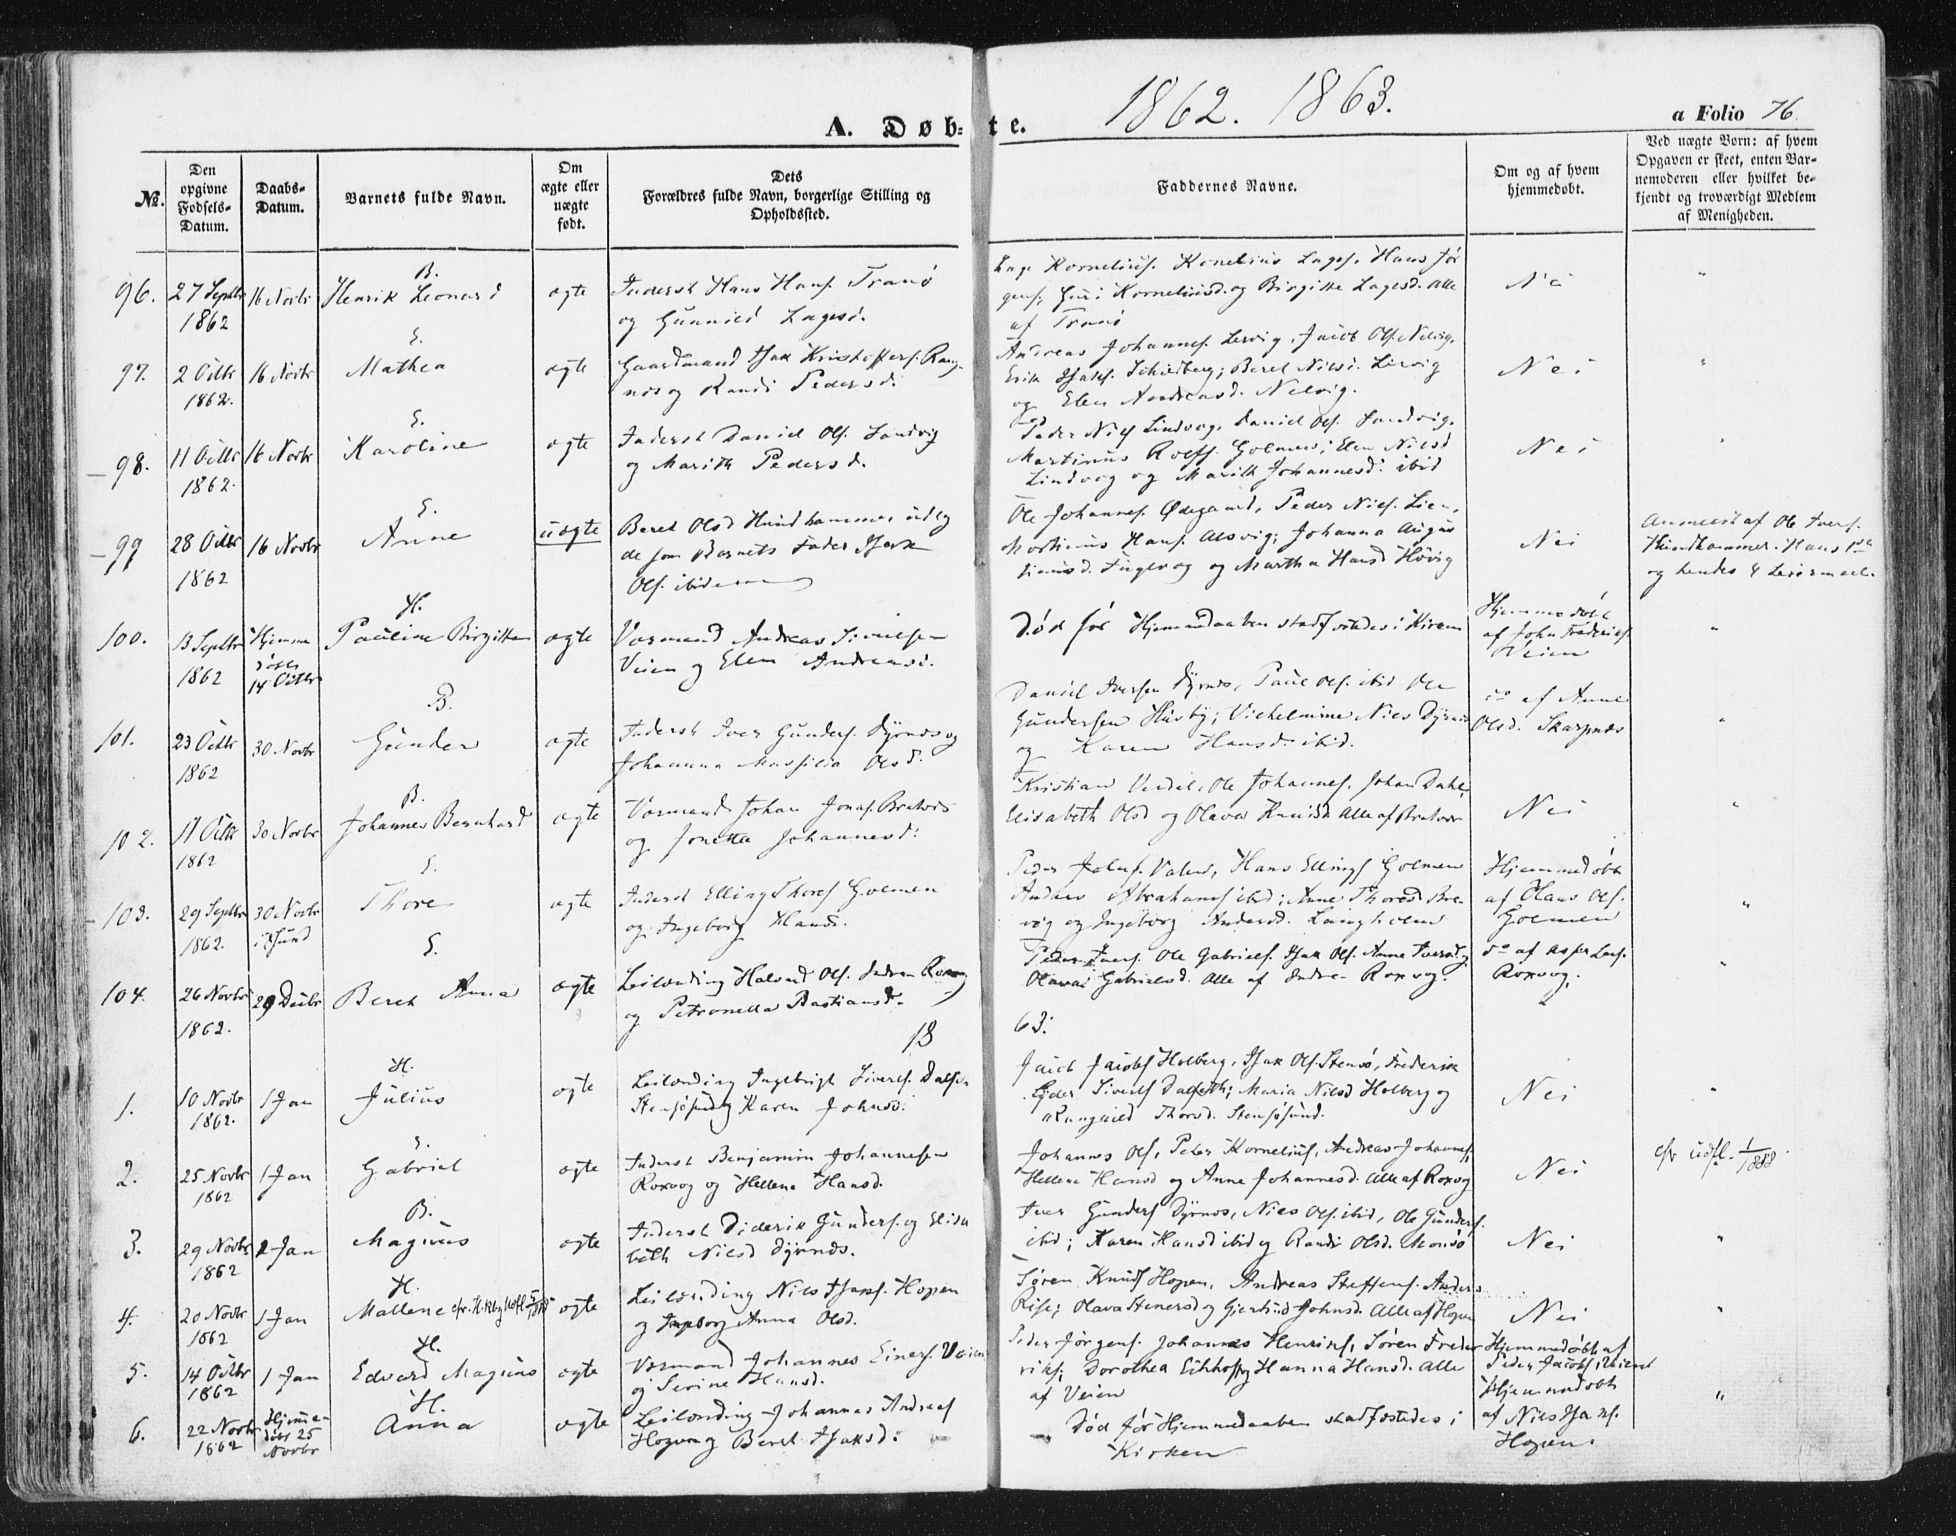 1862. 1863.
A. Døbte.
a Folio 76.
№.
Den opgivne Fødsels-Datum.
Daabs-Datum.
Barnets fulde Navn.
Om ægte eller uægte født.
Dets Forældres fulde Navn, borgerlige Stilling og Opholdssted.
Faddernes Navne.
Om og af hvem hjemmedøbt.
Ved uægte Born: af hvem Opgaven er skeet, enten Barnemoderen eller hvilket bekjendt og troværdigt Medlem af Menigheden.
96. 27 Septbr 1862 16 Novbr
B.
Henrik Leonard
ægte
Inderst Hans Hans. Tranö
og Gunnild Lagesd.
Lage Kornelius. Konelius Lages. Hans Jör
gens; Guri Korneliusd. og Birgitte Lagesd. Alle
af Tranö
97. 2 Octbr 1862. 16 Novbr
S.
Mathea
ægte
Gaardmand Isak Kristoffers. Rang
nes og Randi Pedersd.
Andreas Johannes. Lervig, Jacob Ols. Nelvig,
Erik Isaks. ; Beret Nilsd. Lervig
og Elen Andreasd. Nelvig.
Nei
98. 11 Octbr 1862. 16 Novbr
S.
Karoline
ægte
Inderst Daniel Ols. Sandvig
og Marith Pedersd.
Peder Nils Lindvog, Daniel Ols. Sandvig,
Martinus Rolfs. Golmen; Elen Nilsd
Lindvog og Marith Johannesd. ibid
Nei
99 28 Octbr 1862 16 Novbr
S.
Anne
uægte
Beret Olsd Hundhammer udlg
de som Barnets Fader Isak
Ols. ibidem
Ole Johannes. Ødegaard, Peder Niels. Lien,
Mortinus Hans. Alsvig; Johanna Augus
tinusd. Fuglevog og Martha Hansd Hövig
Nei
Anmeldt af Ole Ivers.
Hundhammer. Hans 1ste
og hendes 4 Leiermaal.
100. 13 Septbr 1862 Hjemme døbt 14 Octbr
H.
Pauline Birgitte
ægte
Vormand Andreas Simils
Veien og Elen Andreasd.
Död för Hjemmedaaben stadfæstedes i Kirken
Hjemmedöbt
af John Frederiks.
Veien
101. 23 Octbr 1862 30 Novbr
B.
Gunder
ægte
Inderst Iver Gunders. Dyrnes og
Johanna Massilia Olsd.
Daniel Iversen Dyrnes, Paul Ols. ibid Ole
Gundersen Husby; Vilhelmine Nils Dyrnes
og Karen Hansd. ibid.
do af Anne
Olsd. Skarpnes
102. 11 Octbr 1862 30 Novbr
B.
Johannes Bernhard
ægte
Vormand Johan Jonas. Bratvær
og Jonetta Johannesd.
Kristian Verdal. Ole Johannes. Johan Dahl,
Elisabeth Olsd og Olava Knudsd Alle af Bratvær
Nei
103. 29 Septbr 1862. 30 Novbr
S.
Thore
ægte
Inderst Elling Thores Golmen
og Ingeborg Hansd.
Peder Johns. Valen, Hans Ellings Golmen
Anders Abrahams ibid; Anne Thoresd Bre
vig og Ingeborg Andersd. Langholmen
Hjemmedöbt
af Olaus Ols.
Golmen
104. 26 Novbr 1862. 29 Decbr
S.
Beret Anna
ægte
Leilænding Halvord Ols. Indre Roxvog
og Petronella Bastiansd.
Peder Ivers. Ole Gabriels. Isak Ols. Anne Iversd og
Olava Gabrielsd. Alle af Indre Roxvog.
do af Asper Lars.
Roxvog.
1863.
1. 10 Novbr 1862. 1 Jan
H.
Julius
ægte
Leilænding Ingebrigt Siverts. Dalset
Stensösund og Karen Johnsd.
Jacob Jacobs Holberg, Isak Ols. Stensö, Frederik
Peder Siverts Dalseth; Maria Nilsd Holberg og
Rangnild Thorsd. Stensösund.
Nei
2. 25 Novbr 1862 1 Jan
S.
Gabriel
ægte
Inderst Benjamin Johannesen
Roxvog og Hellene Hansd.
Johannes Ols, Peter Kornelius, Andreas Johannes,
Hellene Hansd og Anne Johannesd. Alle af Roxvog
Nei
cfr. Udfl. 1/1888.
3. 29 Novbr 1862 1 Jan
B.
Magnus
ægte
Inderst Diderik Gunders. og Elisa
beth Nilsd Dyrnes.
Iver Gunders Dyrnes, Nils Ols. ibid, Ole Gunders.
ibid; Karen Hansd ibid og Randi Olsd. Monsö
Nei
4. 20 Novbr 1862 1 Jan
H.
Mallene
ægte
Leilænding Nils Isaks. Hopen
og Ingeborg Anna Olsd.
Sören Knuds Hopen, Andreas Steffens. Anders
Rise; Olava Stenersd og Gjertrud Johnsd. Alle af Hopen
Nei
5. 14 Octbr 1862 1 Jan
H.
Edvard Magnus
ægte
Vormand Johannes Einers. Veien
og Serine Hansd.
Peder Jörgens. Johannes Henriks, Sören Freder
riks; Dorothea Eihhof og Hanna Hansd. Alle
af Veien
Hjemmedöbt af
Peder Jacobs,
6. 22 Novbr 1862 Hjemme døbt 25 Novbr
H.
Anna
ægte
Leilænding Johannes Andreas
Hopen og Beret Isaksd.
Död för Hjemmedaaben stadfæstedes i
Kirken
Hjemmedöbt
af Nils Isaks.
Hopen.